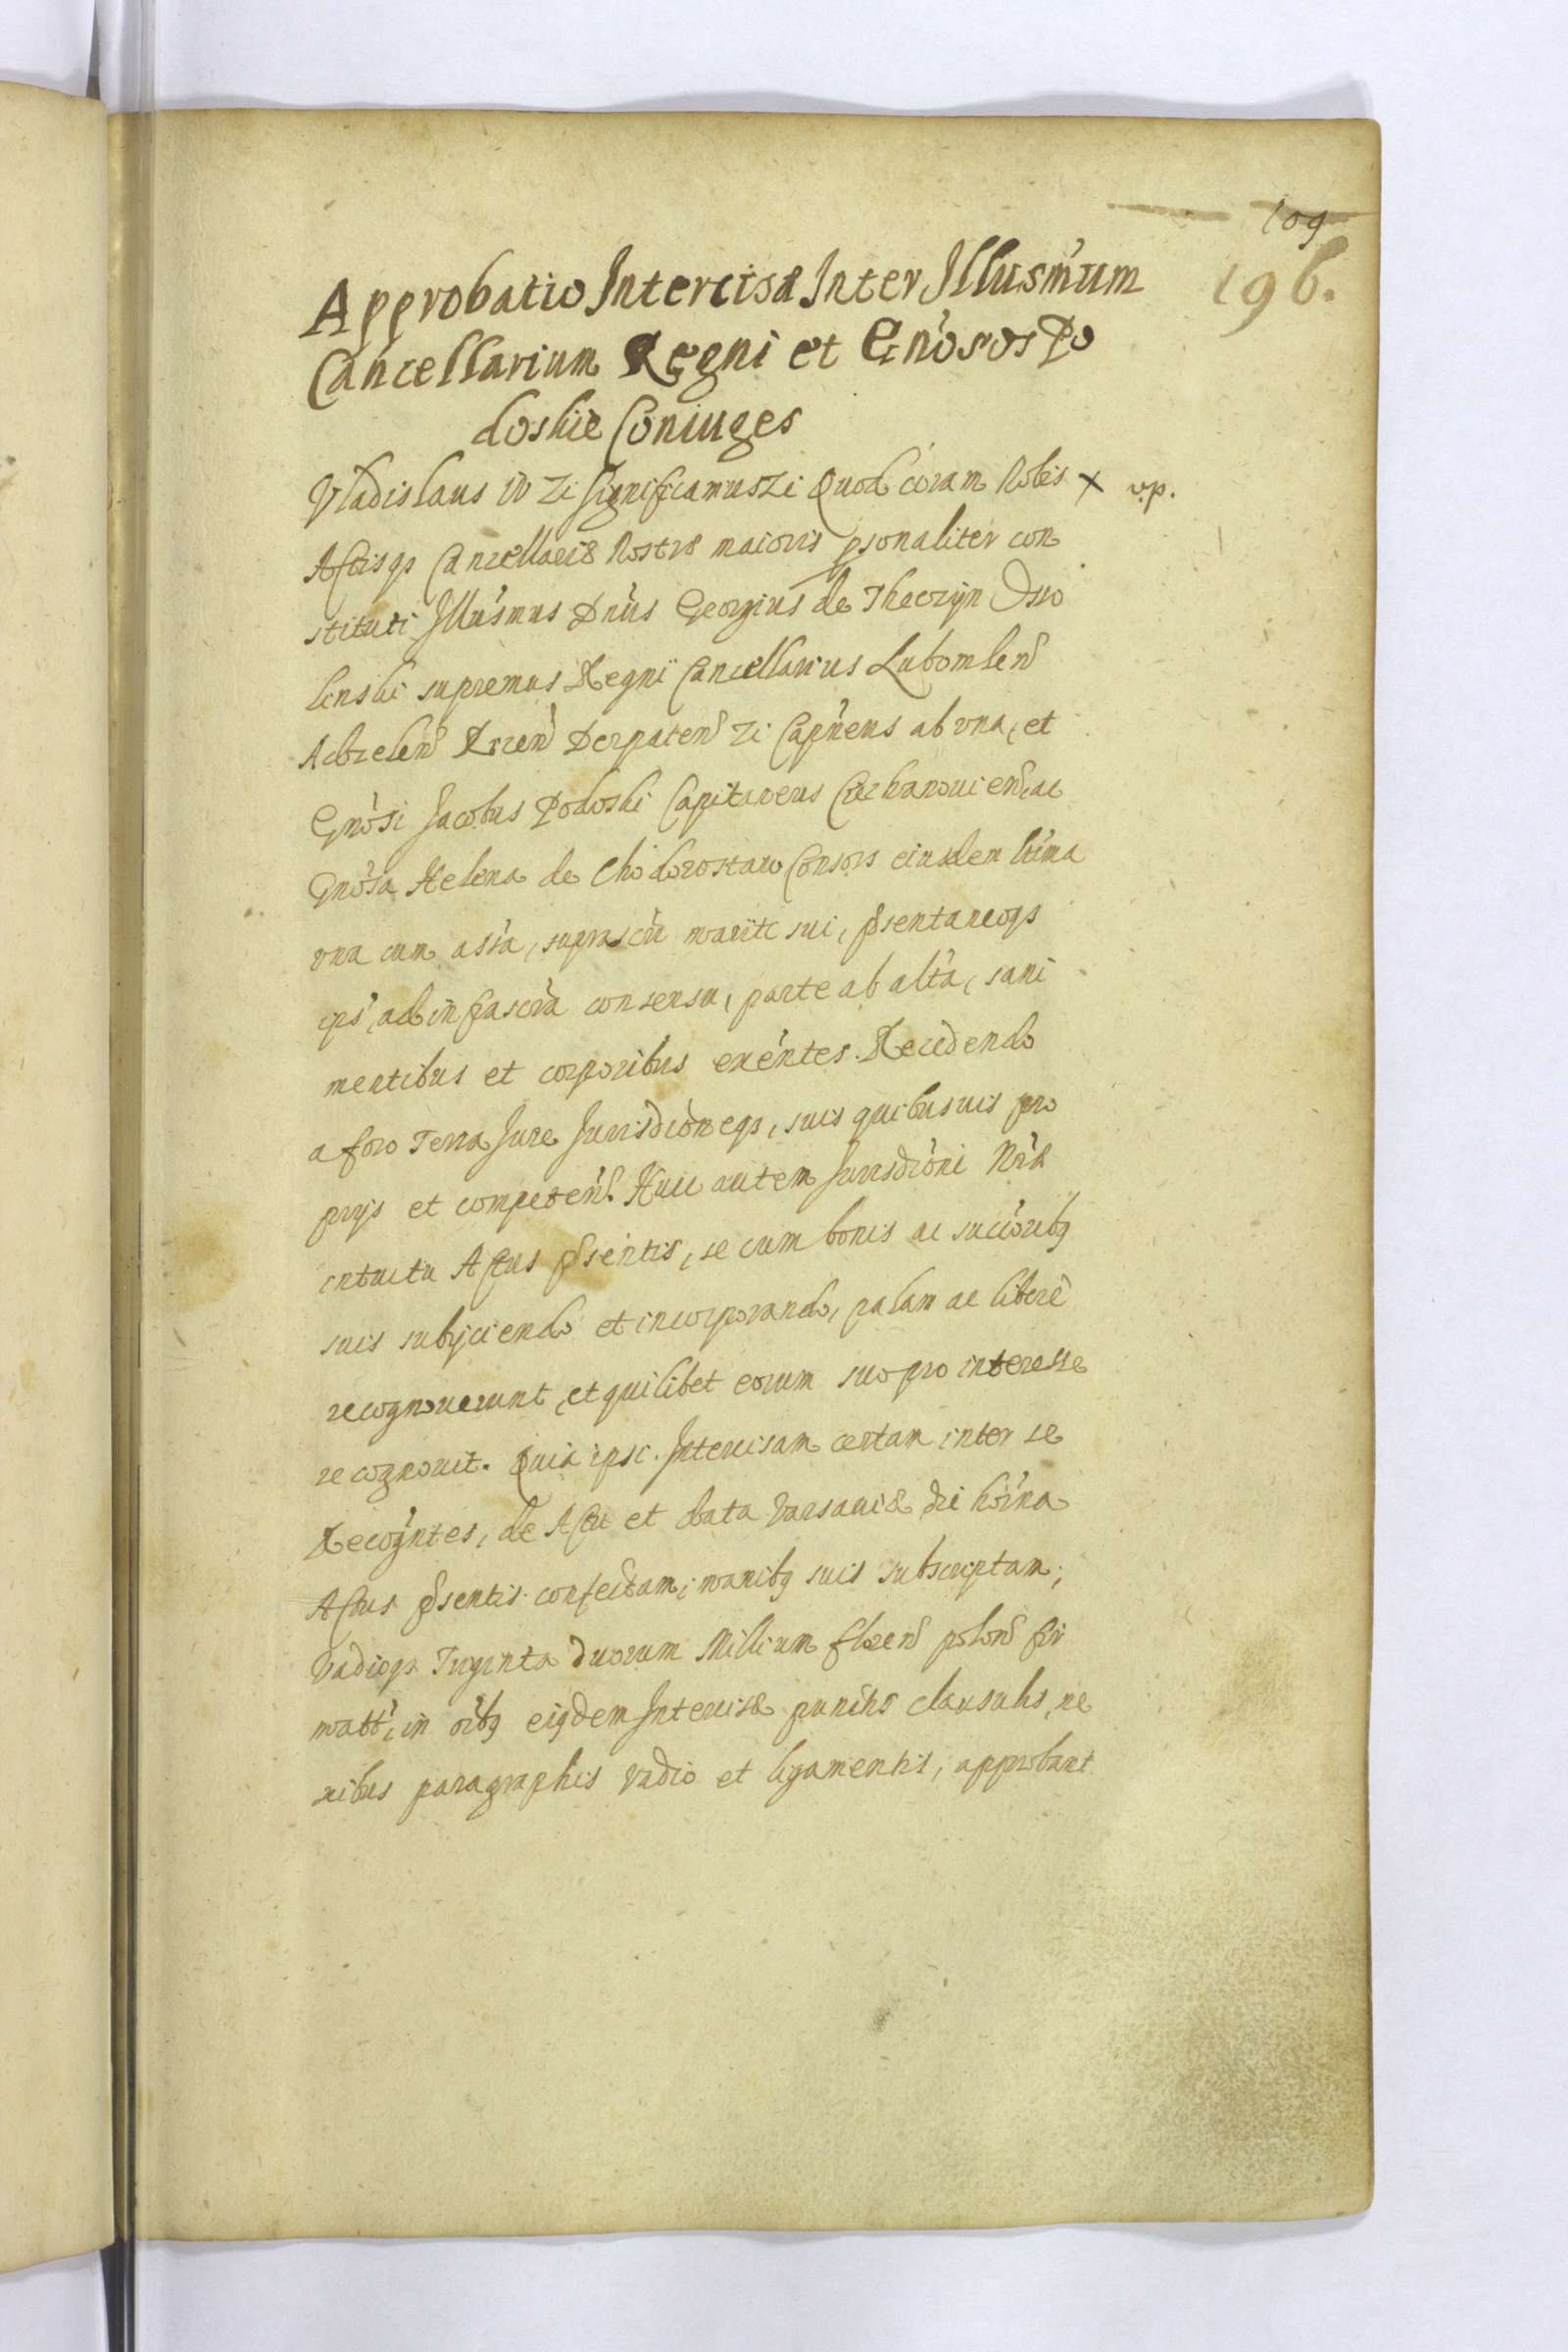 109
196.
Approbatio Intercisæ Inter Illusm̃um
Cancellarium Regni et Gñosos Po
doskie Coniuges
Vladislaus IV zi significamus zi Quod coram Nobis x v.p.
Actisqȝ Cancellariæ Nostræ maioris psonaliter con
stituti Illũsmus Dñus Georgius de Theczÿn Osso
linski supremus Regni Cancellarius Lubomlen
Adzelen Derpaten zi Capñeus ab vna, et
Gñosi Jacobus Podoski Capitaneus Ciechanouien, ac
Gñosa Helena de Chodorostaw Consors eiusdem ltima
vna cum assia, suprascr̃i mariti sui, psentaneoqȝ
ips, ad infrascr̃a consensu, parte ab alt̃a, sani
mentibus et corporibus exẽntes. Recedendo
a foro Terra Jure Jurisdic̃oneqȝ, suis quibusuis pro
prijs et competen. Huic autem Jurisdic̃oni Nr̃æ
intuitu Actus psẽntis, se cum bonis ac succ̃oribȝ
suis subijciendo et incorporando, palam ac liberè
recognouerunt, et quilibet eorum suo pro interesse
recognouit. Quia ipsi Intercisam certam inter se
Recogñtes, de Actu et data Varsauiæ die hõrna
Actus psentis confectam; manibȝ suis subscriptam;
Vadioqȝ Triginta duorum Millium floren polon fir
matt, in oĩbȝ eiȝdem Intercisæ punctis clausulis, ne
xibus paragraphis vadio et ligamentis, approbant